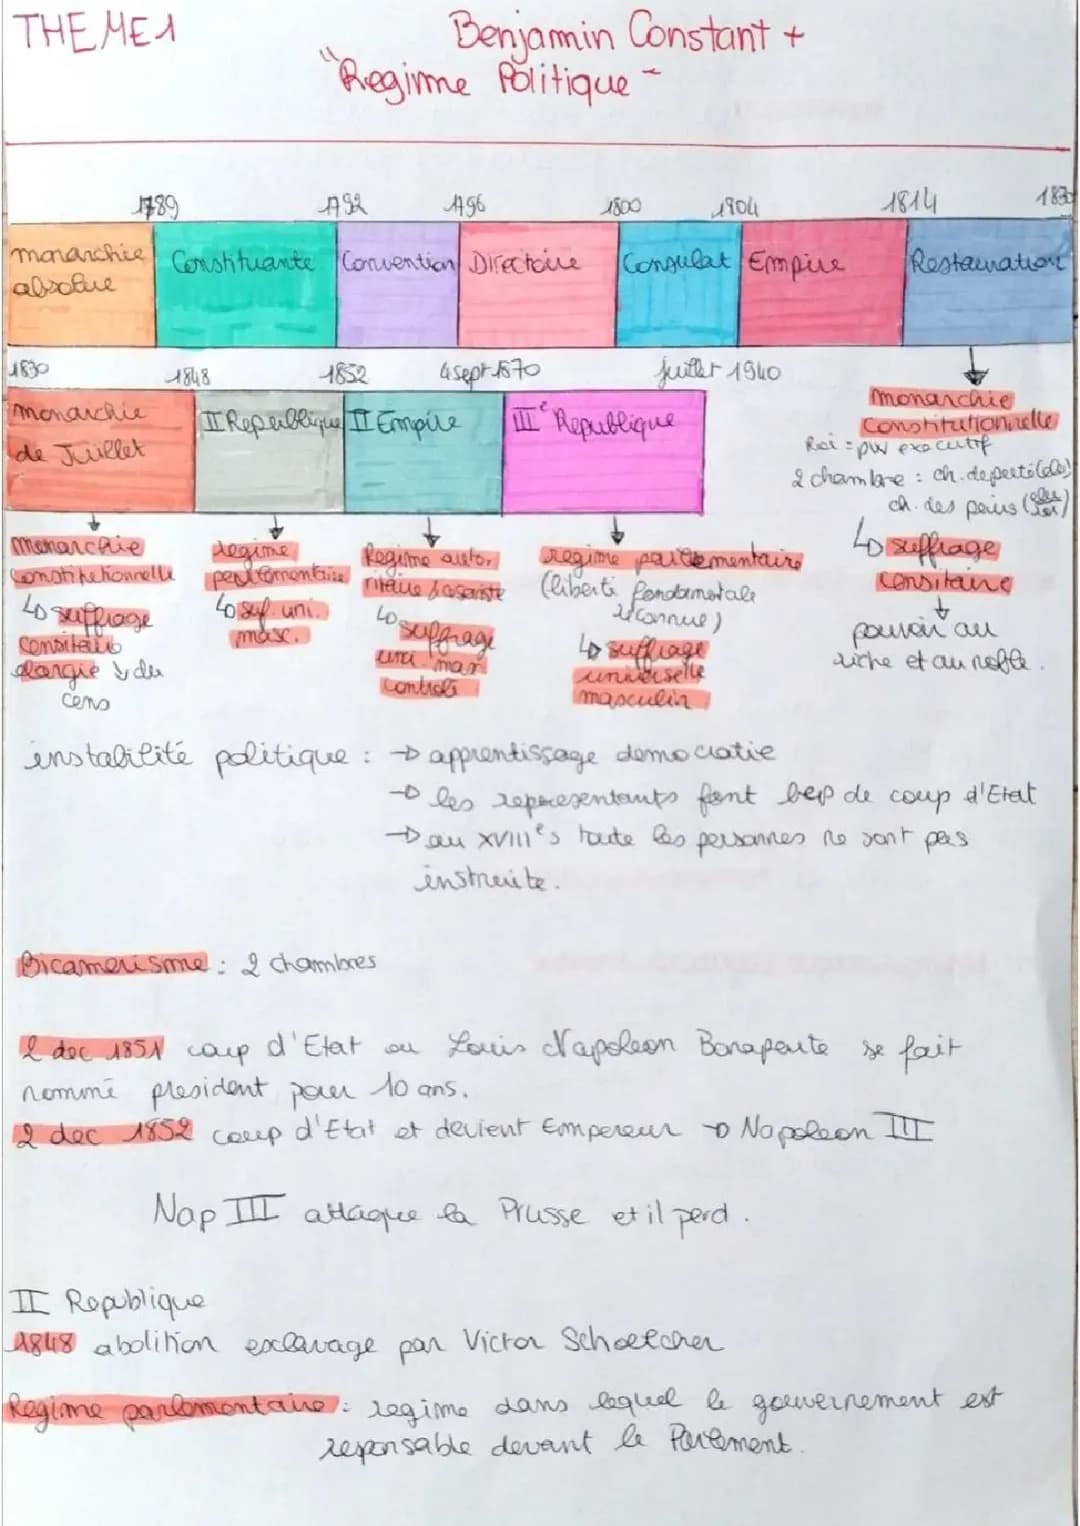 THEME1
Benjamin Constant +
"Regime Politique"
1789 1792 1796 1800 1804 1814 1830
monarchie absolue Constituante Convention Directoire Consulat Empire Restauration
1830 1848 1852 4 sept 1870 juillet 1940
monarchie de Juillet II Republique II Empire IIIe Republique
monarchie
constitutionnelle
Roi = pvr executif
2 chambre : ch. deputé (élu)
ch. des pairs
↳ suffrage
censitaire
↓
pouvoir au
riche et au noble.
monarchie
constitutionnelle
↳ suffrage
censitaire
elargie ↘ du
cens
regime
parlementaire
↳ suf. uni.
masc.
Regime auto-
ritaire
↳ suffrage
uni. mas
controlé
regime parlementaire
(liberté fondamentale
reconnue)
↳ suffrage
universelle
masculin
instabilité politique : → apprentissage democratie
→ les representants font bcp de coup d'Etat
→ au XVIIIe s toute les personnes ne sont pas
instruite.
Bicamerisme : 2 chambres
2 dec 1851 coup d'Etat ou Louis Napoleon Bonaparte se fait
nommé president pour 10 ans.
2 dec 1852 coup d'Etat et devient Empereur → Napoleon III
Nap III attaque la Prusse et il perd.
II Republique
1848 abolition exclavage par Victor Schoelcher
Regime parlementaire : regime dans lequel le gouvernement est
responsable devant le Parlement.